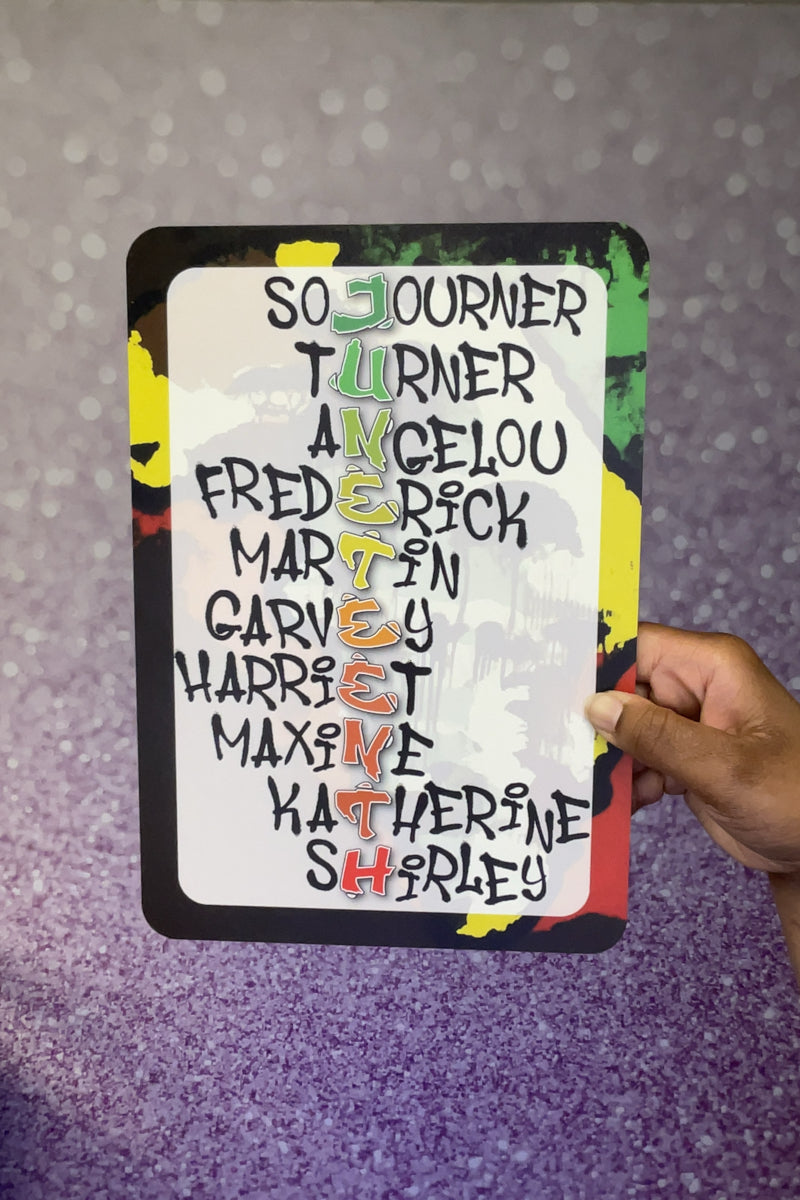 SOJOURNER
TURNER
ANGELOU
FREDERiCK
MARTiN
GARVEY
HARRiET
MAXiNE
KATHERiNE
SHiRLEY